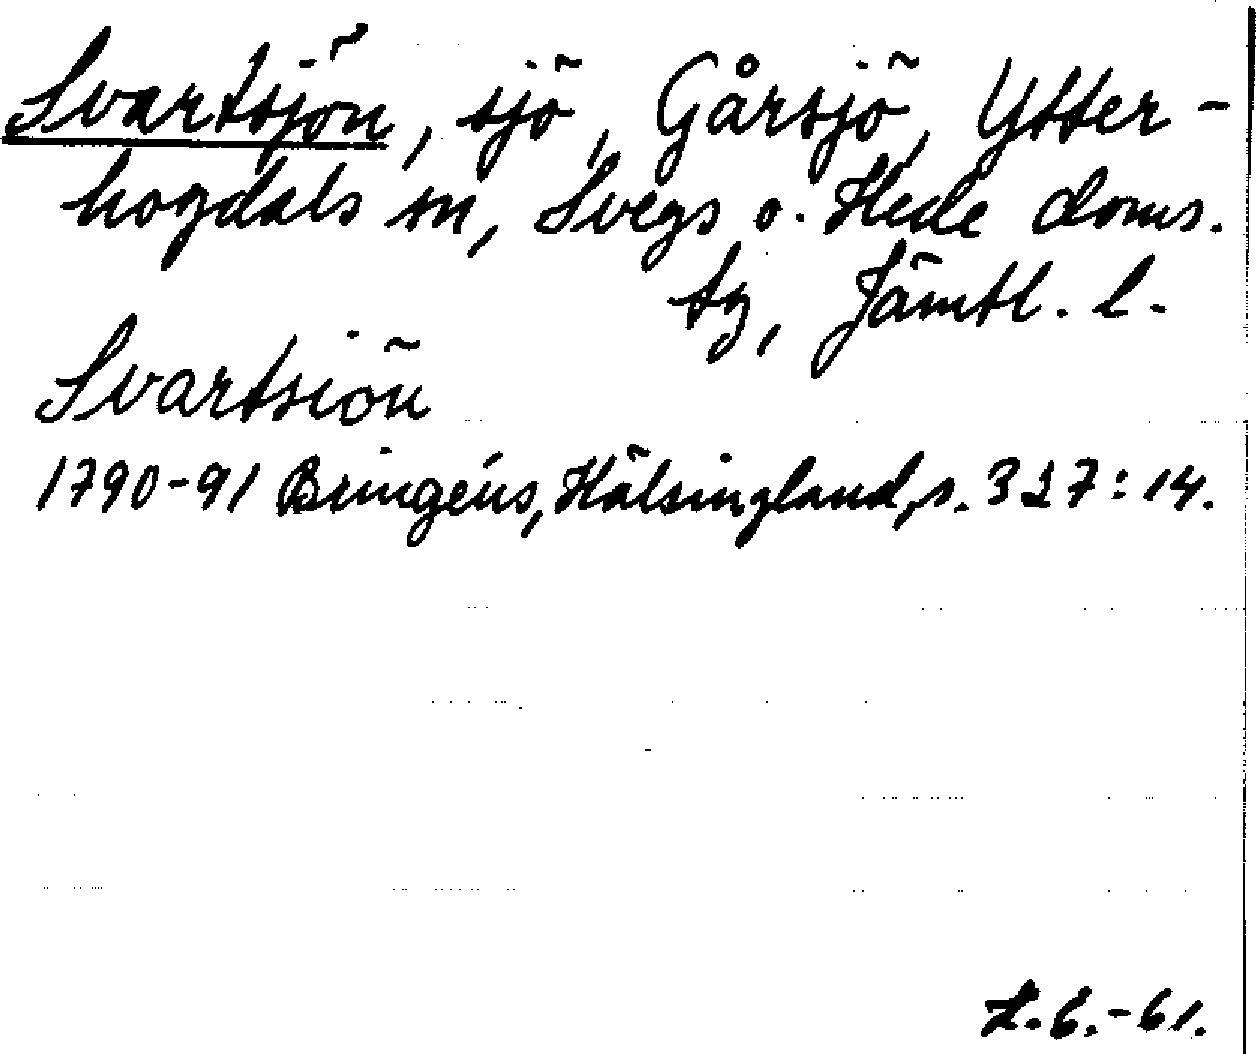 Svartsjön, sjö, Gårsjö, Ytter-
hogdals sn, Svegs o. Hede doms.
tg, Jämtl. l.
Svartsiön
1790-91 Bringéus, Hälsingland, s. 327:14.
L.G.-61.